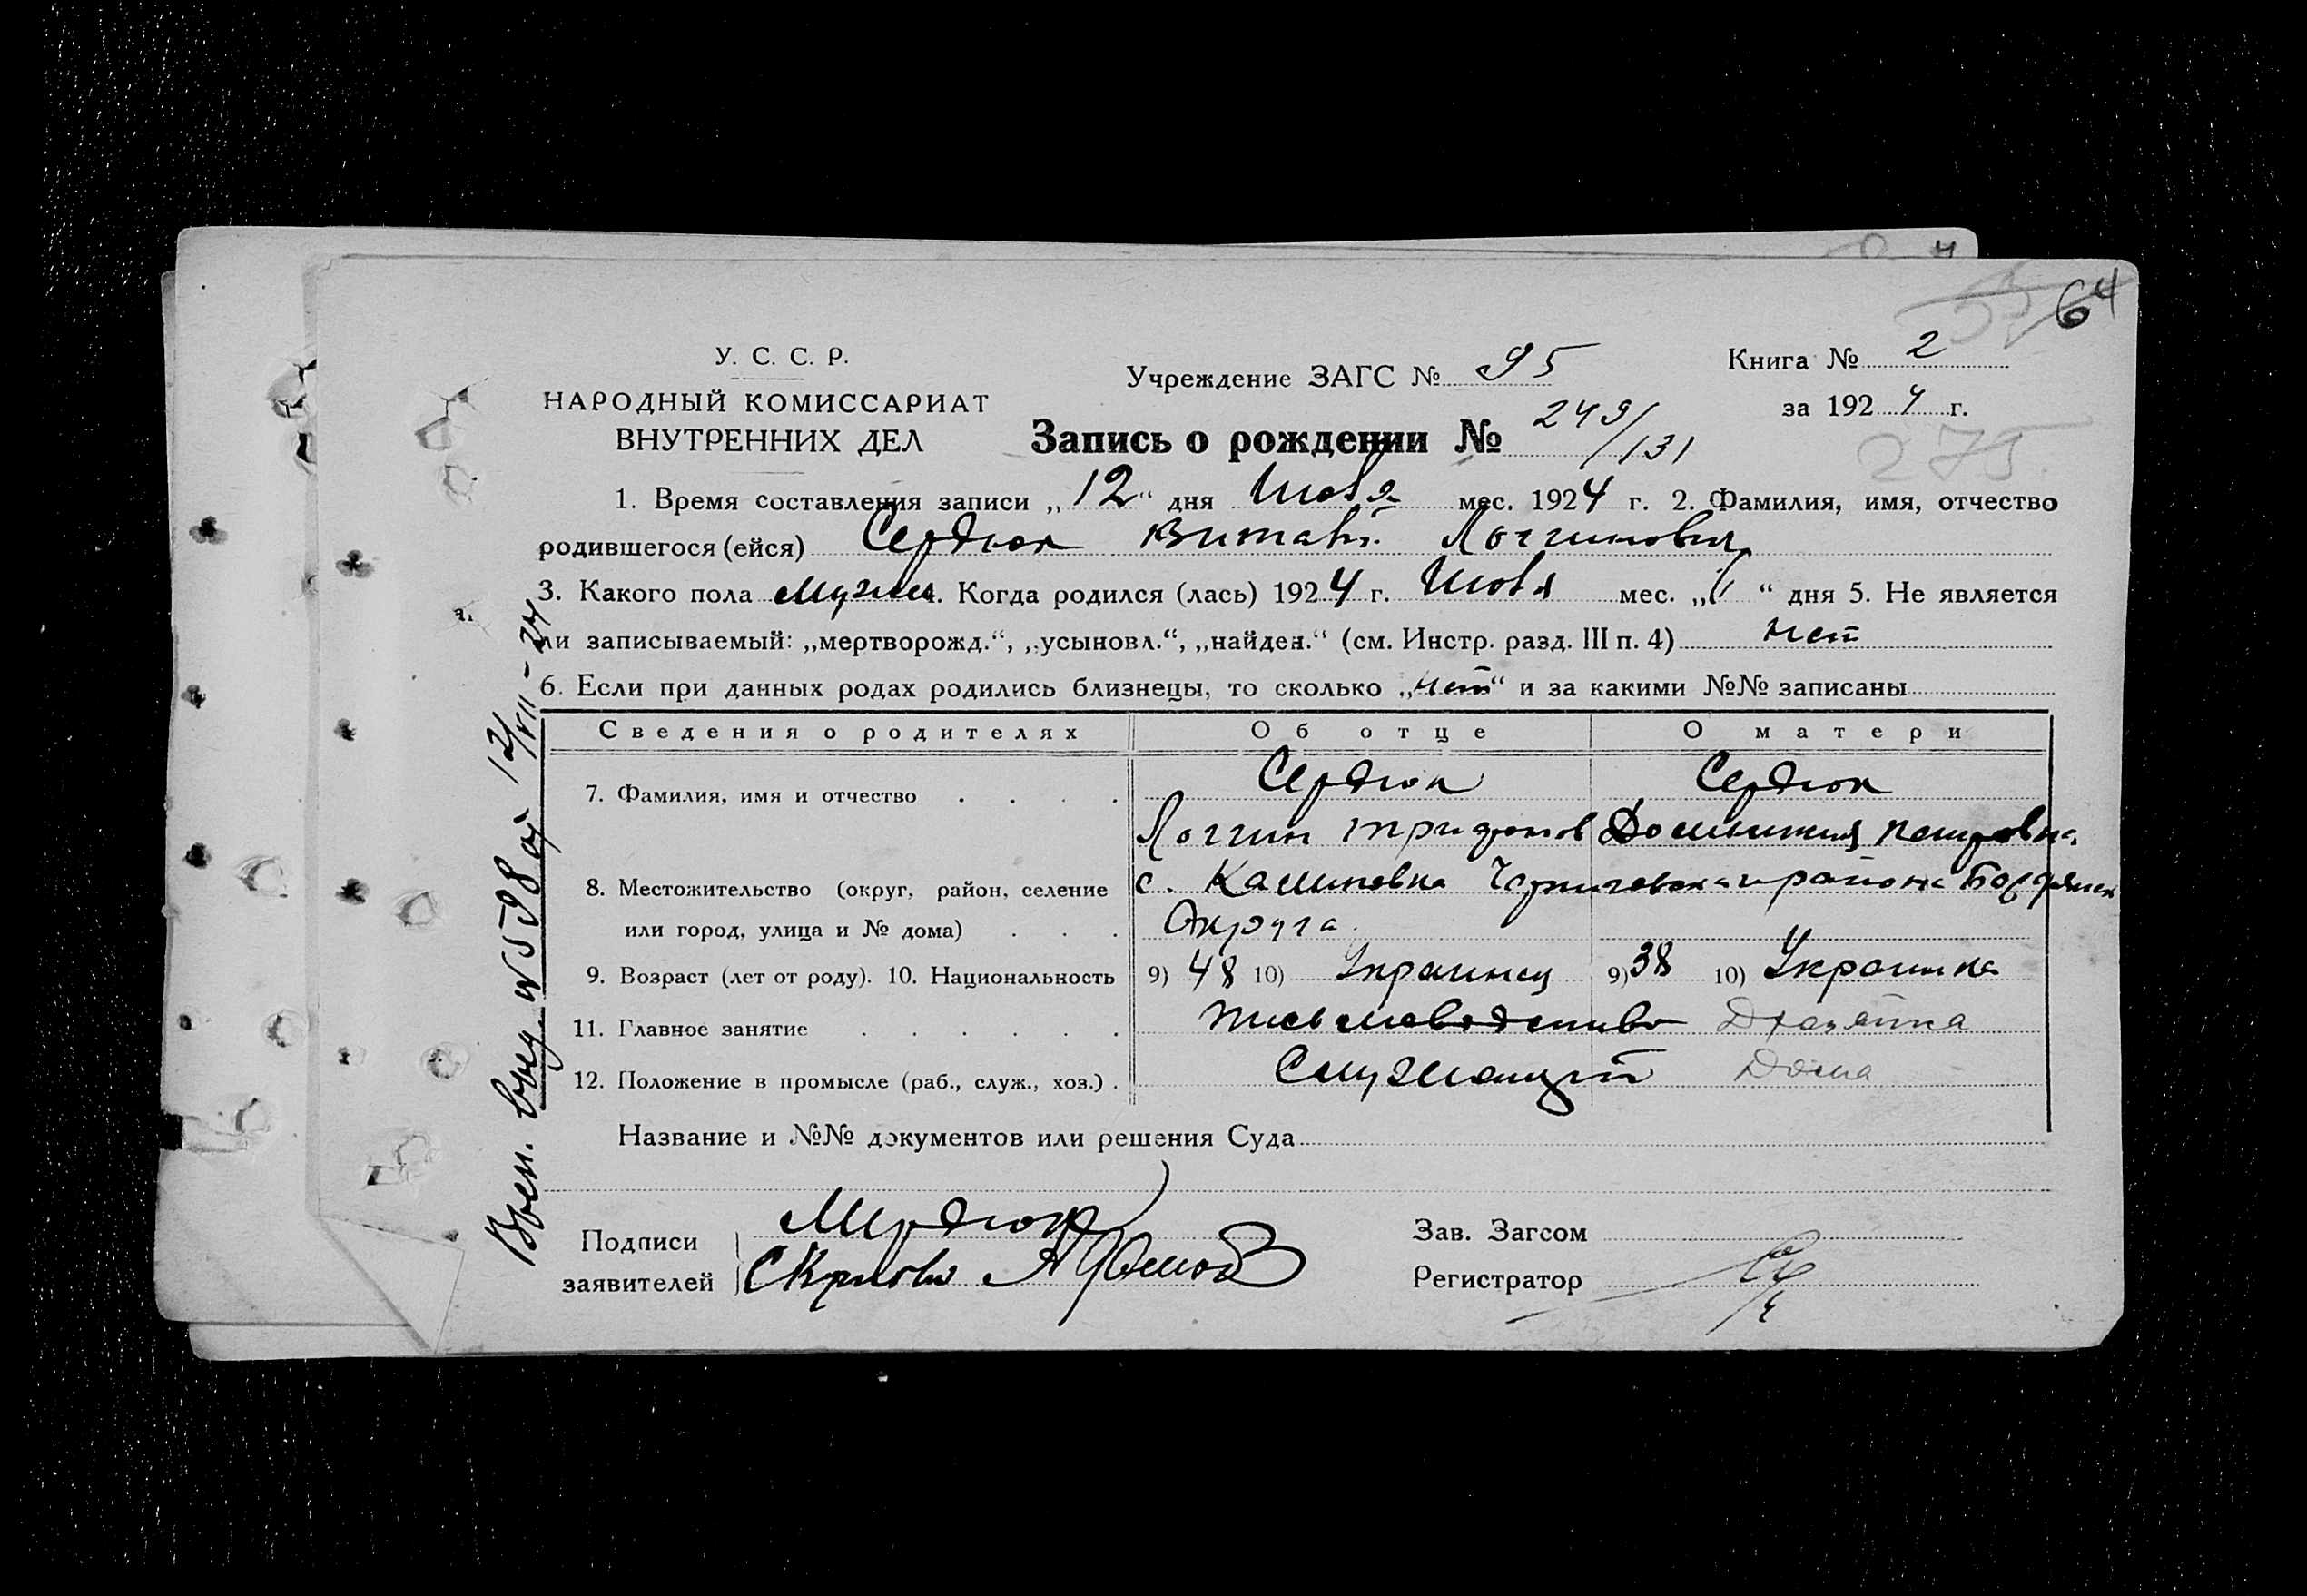 64
У. С. С. Р.
НАРОДНЫЙ КОМИССАРИАТ
ВНУТРЕННИХ ДЕЛ
Учреждение ЗАГС № 95
Книга № 2
за 1924 г.
Запись о рождении № 249/131
275
1. Время составления записи „12“ дня Июля мес. 1924 г. 2. Фамилия, имя, отчество
родившегося (ейся) Сердюк Виталий Логгинович
3. Какого пола мужск. Когда родился (лась) 1924 г. Июля мес. „ “ дня 5. Не является
ли записываемый: „мертворожд.“, „усыновл.“, „найден.“ (см. Инстр. разд. III п. 4) нет
6. Если при данных родах родились близнецы, то сколько „нет“ и за какими №№ записаны
Сведения о родителях Об отце О матери
7. Фамилия, имя и отчество . . . . Сердюк Сердюк
Логгин Трифонов Домникия Петровна
8. Местожительство (округ, район, селение с. Калиновка Черниговского района Бердянск
или город, улица и № дома) . . . Округа
9. Возраст (лет от роду). 10. Национальность 9) 48 10) Украинец 9) 38 10) Украинка
11. Главное занятие . . . . . . Письмоводство Хозяйка
12. Положение в промысле (раб., служ., хоз.) . Служащий Дома
Название и №№ документов или решения Суда
Подписи
заявителей
Зав. Загсом
Регистратор
выд. № 598 от 12/VII-24